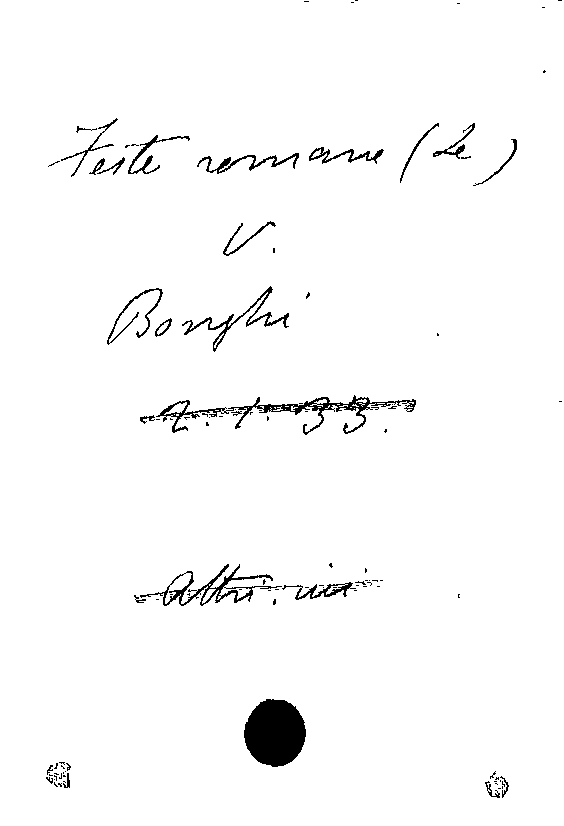 Feste romane (Le)
V.
Bonghi
Z. 1. 33.
Altri. ivi